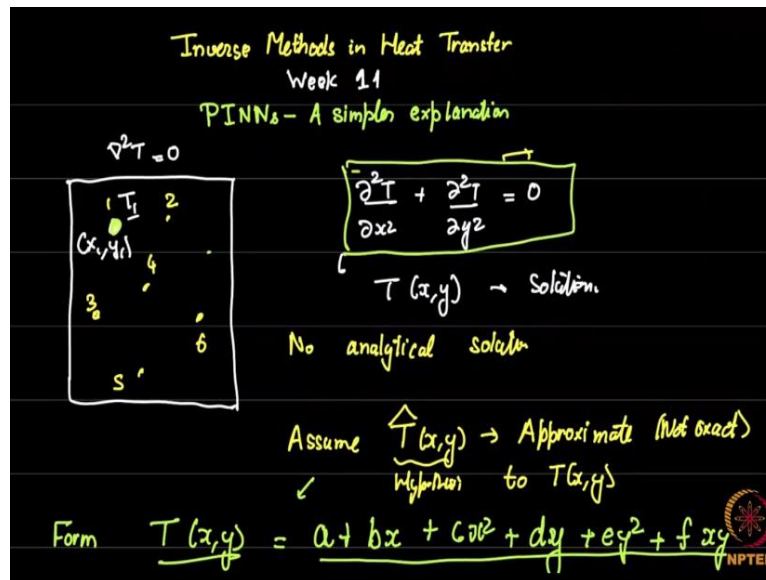 Inverse Methods in Heat Transfer
Week 11
PINNs - A simpler explanation
∇²T = 0
1 T₁ 2
(x₁, y₁)
4
3
6
5
∂²T/∂x² + ∂²T/∂y² = 0
T(x,y) → Solution.
No analytical solution
Assume T̂(x,y) → Approximate (Not exact)
to T(x,y)
Form T(x,y) = a + bx + cx² + dy + ey² + fxy
NPTEL